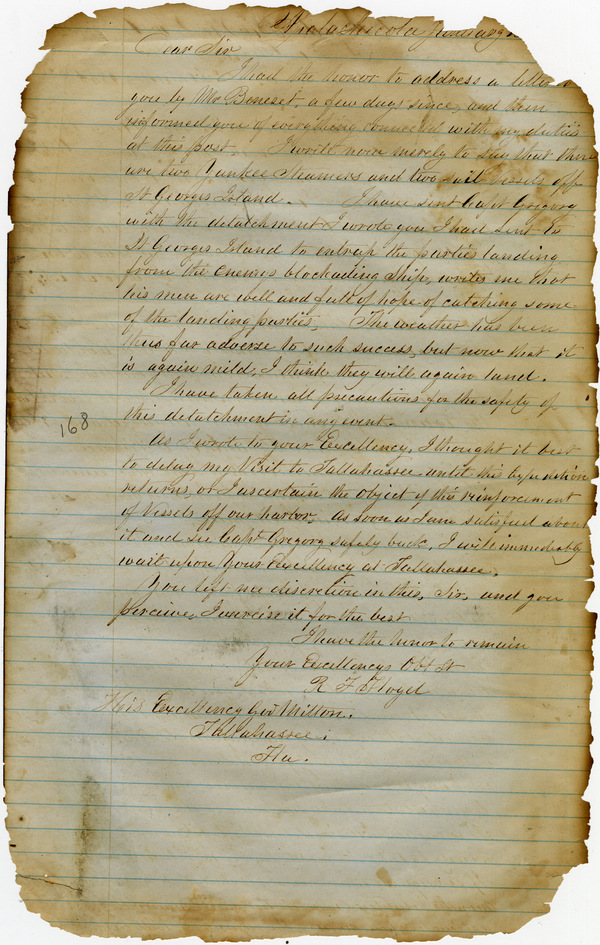 Apalachicola January
Dear Sir
I had the honor to address a letter
you by Mr Beneset, a few days since, and then
informed you of everything connected with my duties
at this post. I write now merely to say that there
are two Yankee Steamers and two sail vessels off
St Georges Island. I have sent Capt Gregory
with the detatchment I wrote you I had sent to
St Georges Island to entrap the parties landing
from the enemys blockading ship, writes me that
his men are well and full of hope of catching some
of the landing parties. The weather has been
thus far adverse to such success, but now that it
is again mild, I think they will again land.
I have taken all precautions for the safety of
this detatchment in any event.
As I wrote to your Excellency, I thought it best
to delay my visit to Tallahassee until this expedition
returns, or I ascertain the object of this reinforcement
of Vessels off our harbor. As soon as I am satisfied about
it and see Capt Gregory safely back, I will immediately
wait upon Your Excellency at Tallahassee.
You left me discretion in this, Sir, and you
perceive, I exercise it for the best
I have the honor to remain
Your Excellencys Obt St
R F Floyd
His Excellency Gov Milton.
Tallahassee.
Fla.
168